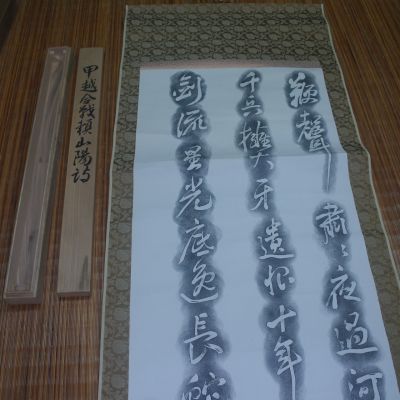 鞭聲肅々夜過河
千兵擁大牙遺恨十年
劍流星光底逸長蛇
甲越合戰頼山陽詩